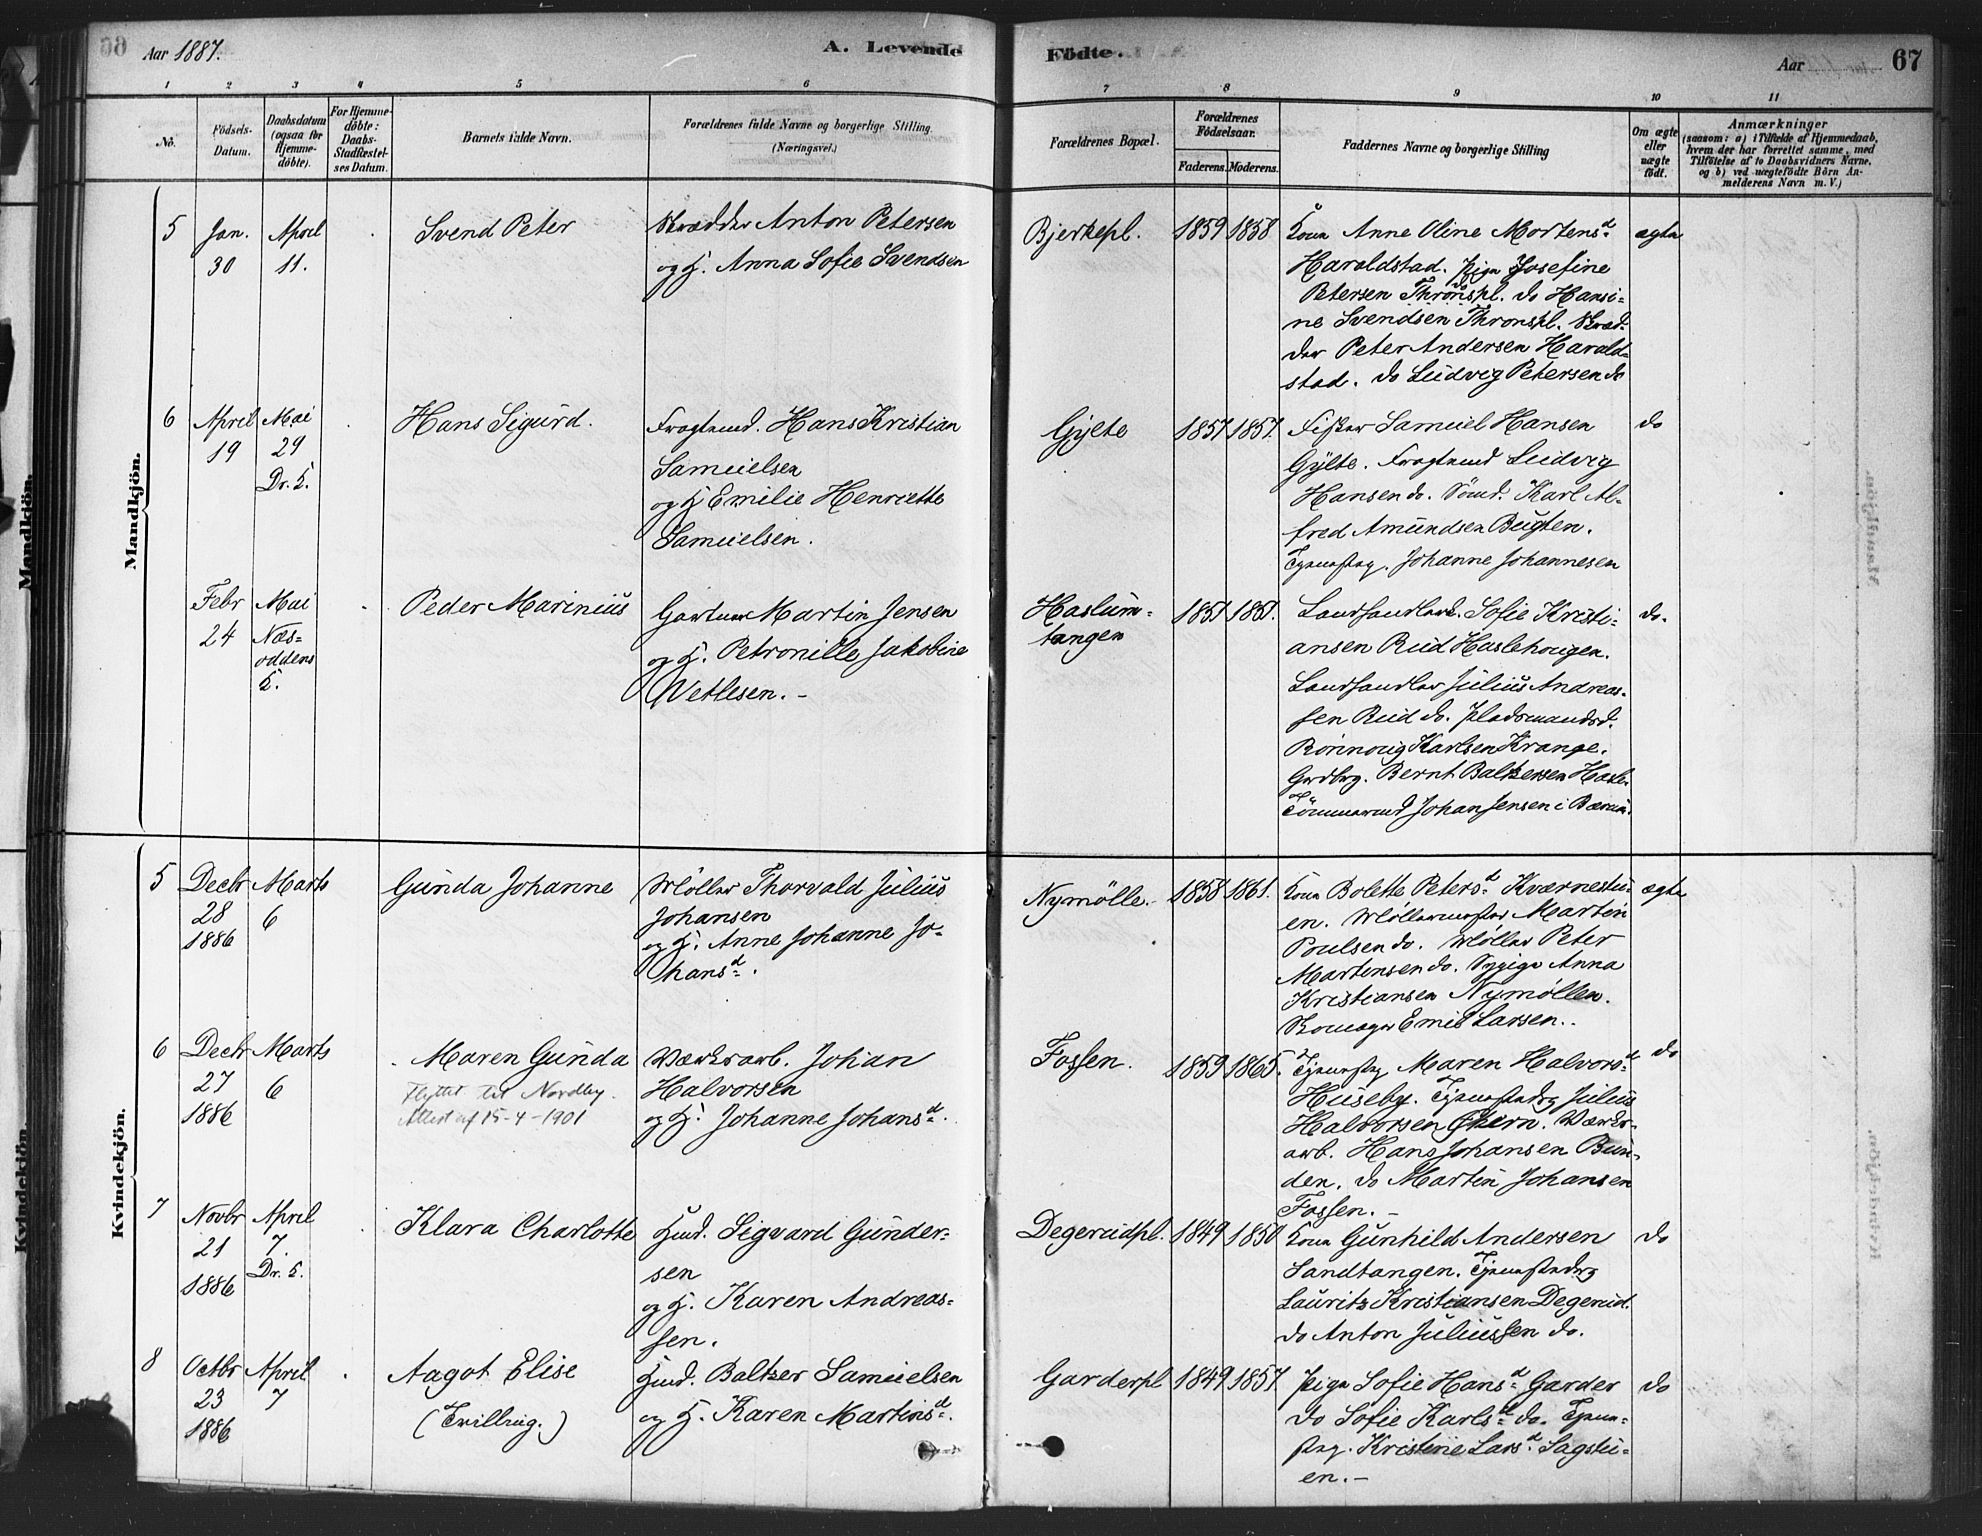 Aar 1887.
A. Levende
Födte.
Aar
67
1 2 3 4 5 6 7 8 9 10 11
No.
Födsels-Datum.
Daabsdatum (ogsaa for Hjemme-döbte).
For Hjemme-döbte: Daabs-Stadfæstel-ses Datum.
Barnets fulde Navn.
Forældrenes fulde Navne og borgerlige Stilling. (Næringsvei.)
Forældrenes Bopæl.
Forældrenes Födselsaar.
Faderens. Moderens.
Faddernes Navne og borgerlige Stilling
Om ægte eller uægte födt.
Anmærkninger
(saasom: a) i Tilfælde af Hjemmedaab,
hvem der har forrettet samme, med
Tilföielse af to Daabsvidners Navne,
og b) ved uægtefödte Börn An-
melderens Navn m. V.)
Mandkjön.
5
Jan. 30
April 11.
Svend Peter
Skrædder Anton Petersen
og H. Anna Sofie Svendsen
Bjerkepl.
1859 1858
Kone Anne Oline Mortensd.
Haraldstad. Pige Josefine
Petersen Thronspl. do Hansi-
ne Svendsen Thronspl. Skræd-
der Peter Andersen Harald-
stad. do Ludvig Petersen do
ægte
6
April 19
Mai 29
Dr. K.
Hans Sigurd.
Fragtemd. Hans Kristian
Samuelsen
og H Emilie Henriette
Samuelsen.
Gylte
1857 1857.
Fisker Samuel Hansen
Gylte. Fragtemd Ludvig
Hansen do. Sömd. Karl Al-
fred Amundsen Bugten.
Tjenestepg. Johanne Johannesen
do
Febr 24
Mai
Næs-
oddens
K.
Peder Marinius
Gartner Martin Jensen
og H. Petronille Jakobine
Wetlesen. -
Haslum-
tangen
1851 1861.
Landhandlerk. Sofie Kristi-
ansen Rud Haslehougen.
Landhandler Julius Andreas-
sen Rud do. Pladsmandsd.
Rönnoug Karlsen Krange.
Grdbrg. Bernt Baltzersen Hasle.
og
Tömmermd Johan Jensen i Bærum.
Kvindekjön.
5
Decbr 28 1886
Marts 6
Gunda Johanne
Møller Thorvald Julius
Johansen
og H. Anne Johanne Jo-
hansd.
Nymölle.
1858 1861.
Kone Bolette Petersd. Kværnestu-
en. Møllermester Martin
Poulsen do. Møller Peter
Martensen do. Sypige Anna
Kristiansen Nymøllen.
Skomager Emil Larsen.
ægte
6
Decbr 27 1886
Marts 6
Maren Gunda
Flyttet til Nordby.
Attest af 15-4-1901
Værksarb. Johan
Halvorsen
og H. Johanne Johansd.
Fossen.
1859 1865.
Tjenestepg Maren Halvorsd.
Huseby. Tjenestedrg Julius
Halvorsen Økern. Værks-
arb. Hans Johansen Bun-
den. do Martin Johansen
Fossen. -
do
7
Novbr 21 1886
April 7.
Dr. K.
Klara Charlotte
Hmd. Sigvard Gunder-
sen
og H. Karen Andreas-
sen.
Degerudpl.
1849 1850
Kone Gunhild Andersen
Sandtangen. Tjenestedrg
Lauritz Kristiansen Degerud.
do Anton Juliussen do.
do
8
Octbr 23 1886
April 7
Aagot Elise
(Tvilling.)
Hmd. Baltzer Samuelsen
og H. Karen Martinsd.
Garderpl
1849 1857.
Pige Sofie Hansd. Garder
do Sofie Karlsd. do. Tjene-
stepg. Kristine Larsd. Sagstu-
en. -
do